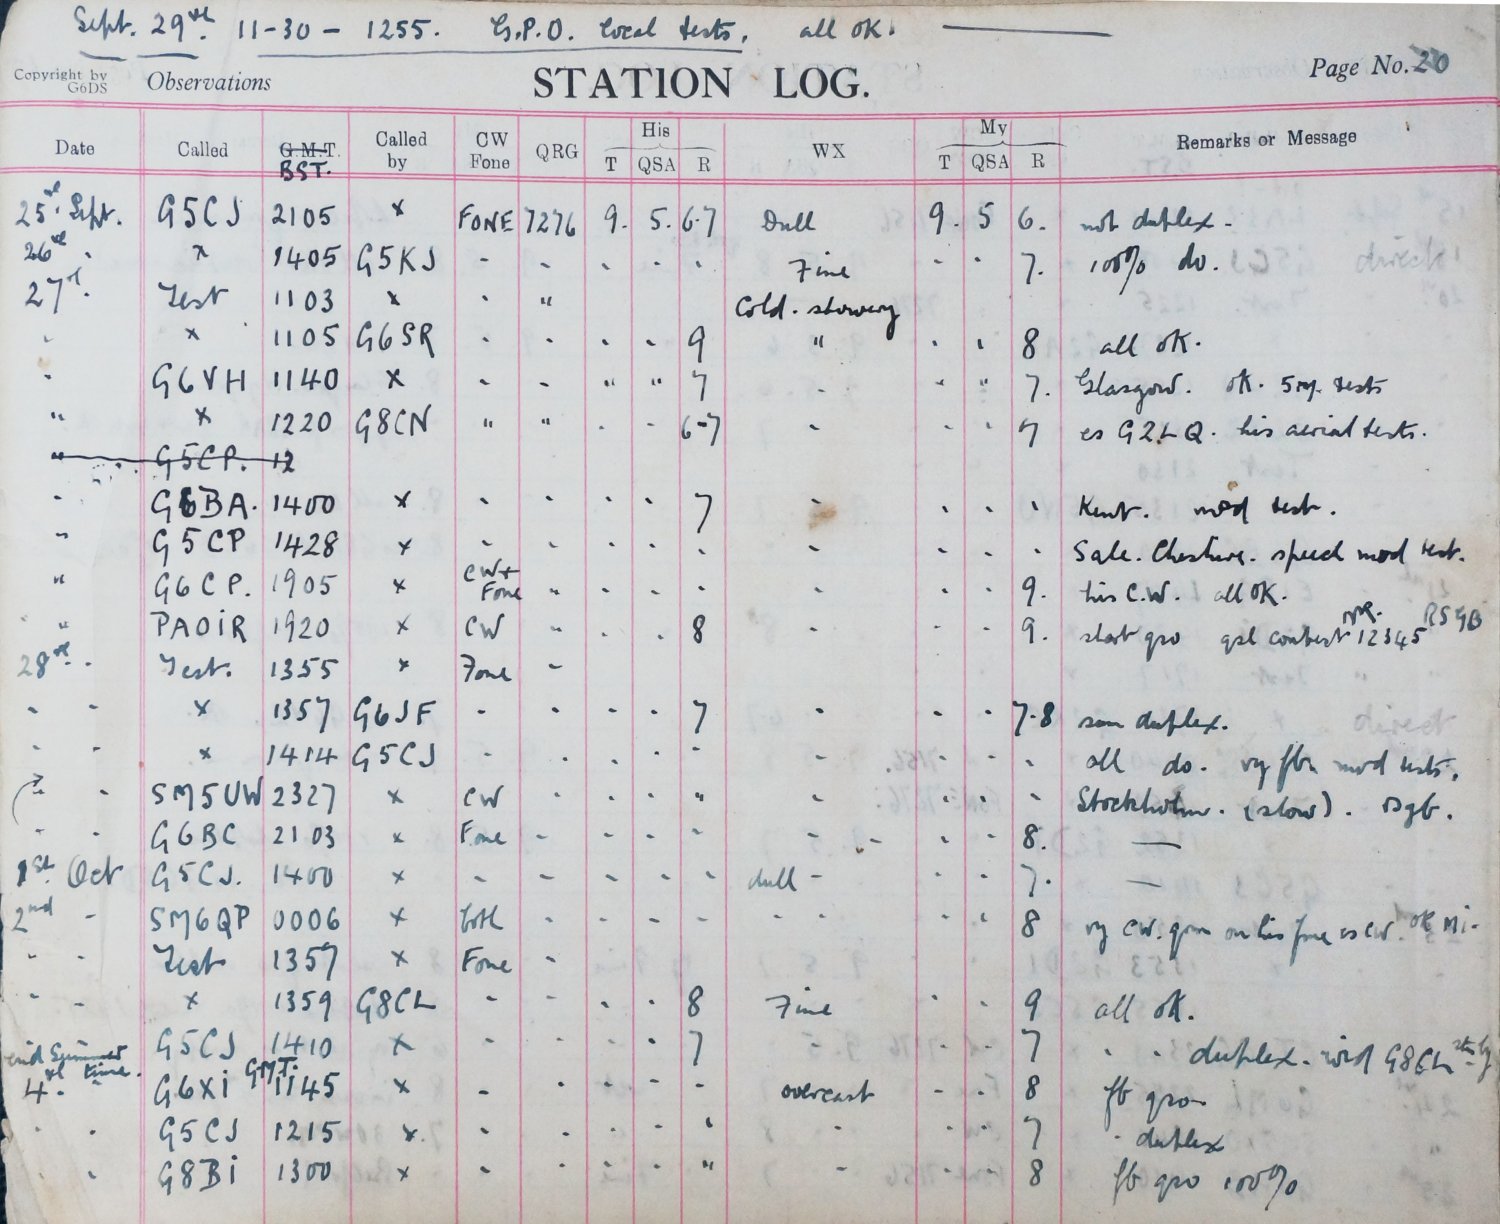 Sept. 29th. 11-30 - 1255. G.P.O. local tests. all OK.
Copyright by G6DS Observations STATION LOG. Page No. 20
Date Called G.M.T. BST. Called by CW Fone QRG His T QSA R WX My T QSA R Remarks or Message
25th. Sept. G5CJ 2105 x FONE 7276 9. 5. 6-7 Dull 9. 5 6. not duplex.
26th - x 1405 G5KJ - - - - - Fine - - 7. 100% do.
27th. Test 1103 x - " Cold. showery
- x 1105 G6SR - - - - 9 " - - 8 all OK.
- G6VH 1140 x - - " " 7 - - " 7. Glasgow. OK. 5m. tests
" x 1220 G8CN " " - - 6-7 - - - 7 es G2LQ. his aerial tests.
" G5CP. 12
- G6BA. 1400 x - - - - 7 - - - - Kent. mod test.
" G5CP 1428 x - - - - - - - - - Sale. Cheshire. speech mod test.
" G6CP. 1905 x CW + Fone " - - - - - - 9. his C.W. all OK.
" PAOIR 1920 x CW - - - 8 - - - 9. start qso qsl contest nr. 12345 RSGB
28th. - Test. 1355 x Fone -
- - x 1357 G6JF - - - - 7 - - - 7-8 sum duplex.
- - x 1414 G5CJ - - - - - - - - - all do. vy fb mod tests.
" - SM5UW 2327 x CW - - - " - - - - Stockholm. (slow). rsgb.
- - G6BC 2103 x Fone - - - - - - - 8. —
1st. Oct G5CJ. 1400 x - - - - - dull - - - 7. —
2nd - SM6QP 0006 x both - - - - - - - 8 vy CW. qrm on his fone es CW. OK Mi.
- - Test 1357 x Fone -
- - x 1359 G8CL - - - - 8 Fine - - 9 all OK.
end Summer time. G5CJ 1410 x - - - - 7 - - 7 - - duplex. wid G8CL
4th. G6XI GMT. 1145 x - - - - - overcast - - 8 fb qso
- - G5CJ 1215 x. - - - - - - - - 7 - duplex
- G8BI 1300 x - - - - " - - - 8 fb qso 100%